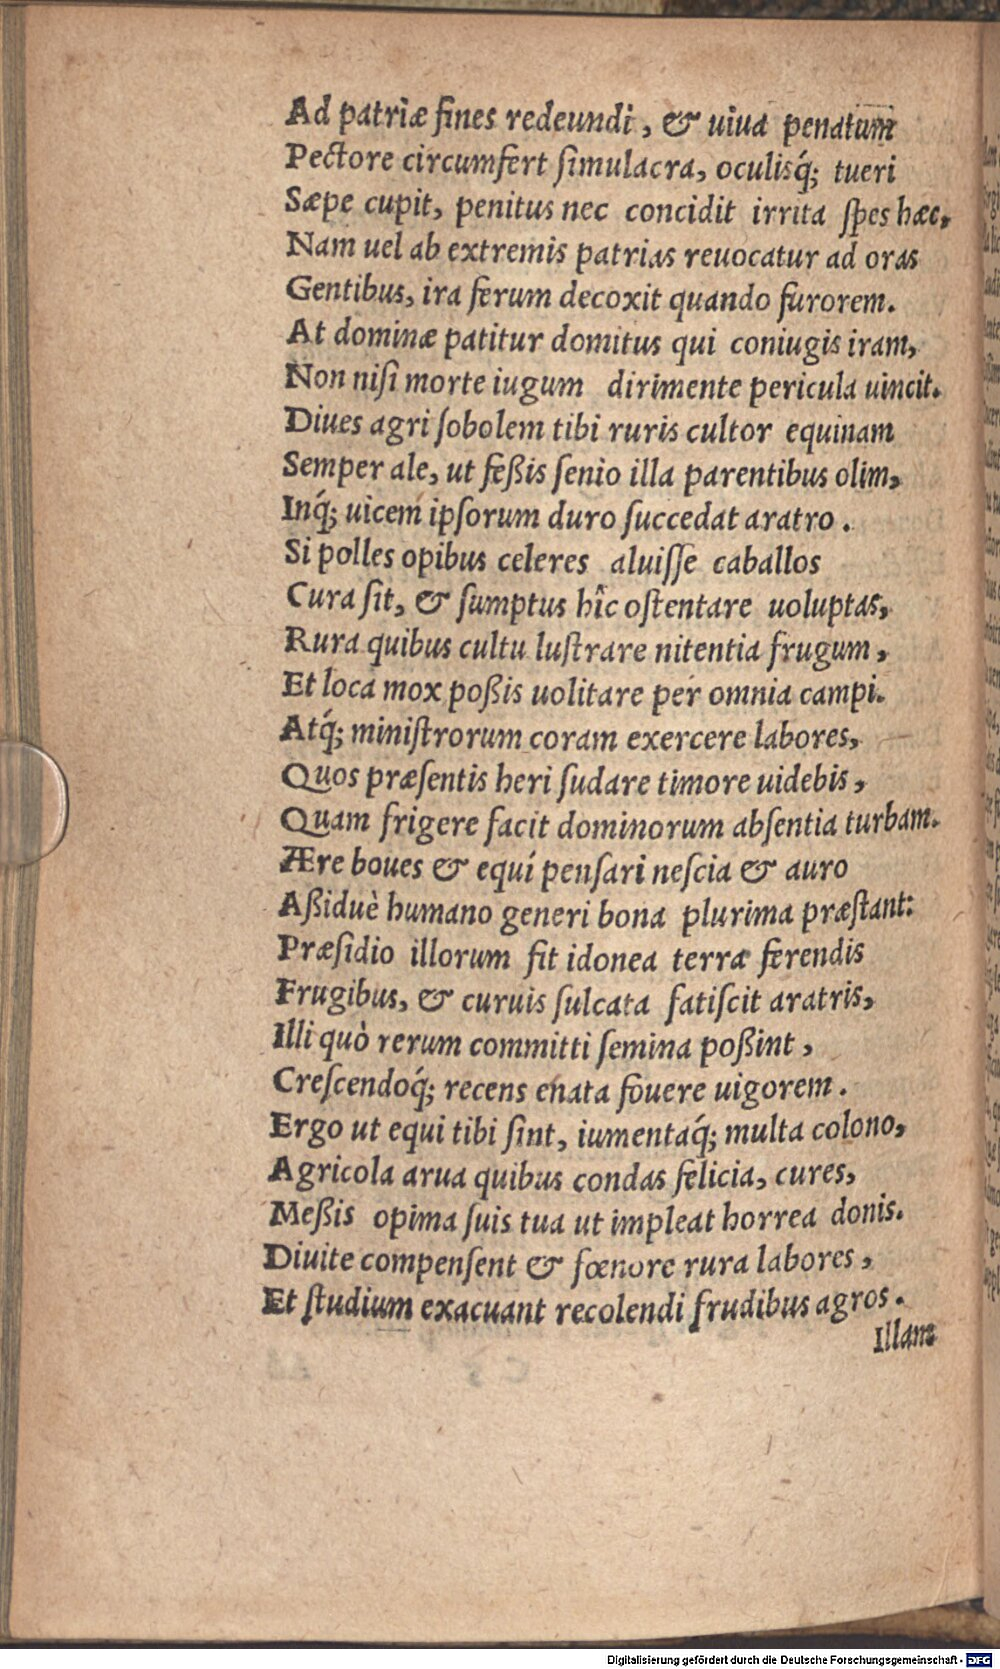 Ad patriæ fines redeundi, & uiua penatum
Pectore circumfert ſimulacra, oculisq́; tueri
Sæpe cupit, penitus nec concidit irrita ſpes hæc,
Nam uel ab extremis patrias reuocatur ad oras
Gentibus, ira ferum decoxit quando furorem.
At dominæ patitur domitus qui coniugis iram,
Non niſi morte iugum dirimente pericula uincit.
Diues agri ſobolem tibi ruris cultor equinam
Semper ale, ut feßis ſenio illa parentibus olim,
Inq́; uicem ipſorum duro ſuccedat aratro.
Si polles opibus celeres aluiſſe caballos
Cura ſit, & ſumptus hîc oſtentare uoluptas,
Rura quibus cultu luſtrare nitentia frugum,
Et loca mox poßis uolitare per omnia campi.
Atq́; miniſtrorum coram exercere labores,
Quos præſentis heri ſudare timore uidebis,
Quam frigere facit dominorum abſentia turbam.
Ære boues & equi penſari neſcia & auro
Aßiduè humano generi bona plurima præſtant:
Præſidio illorum fit idonea terra ferendis
Frugibus, & curuis ſulcata fatiſcit aratris,
Illi quò rerum committi ſemina poßint,
Creſcendoq́; recens enata fouere uigorem.
Ergo ut equi tibi ſint, iumentaq́; multa colono,
Agricola arua quibus condas felicia, cures,
Meßis opima ſuis tua ut impleat horrea donis.
Diuite compenſent & fœnore rura labores,
Et ſtudium exacuant recolendi frudibus agros.
Illam
Digitalisierung gefördert durch die Deutsche Forschungsgemeinschaft - DFG